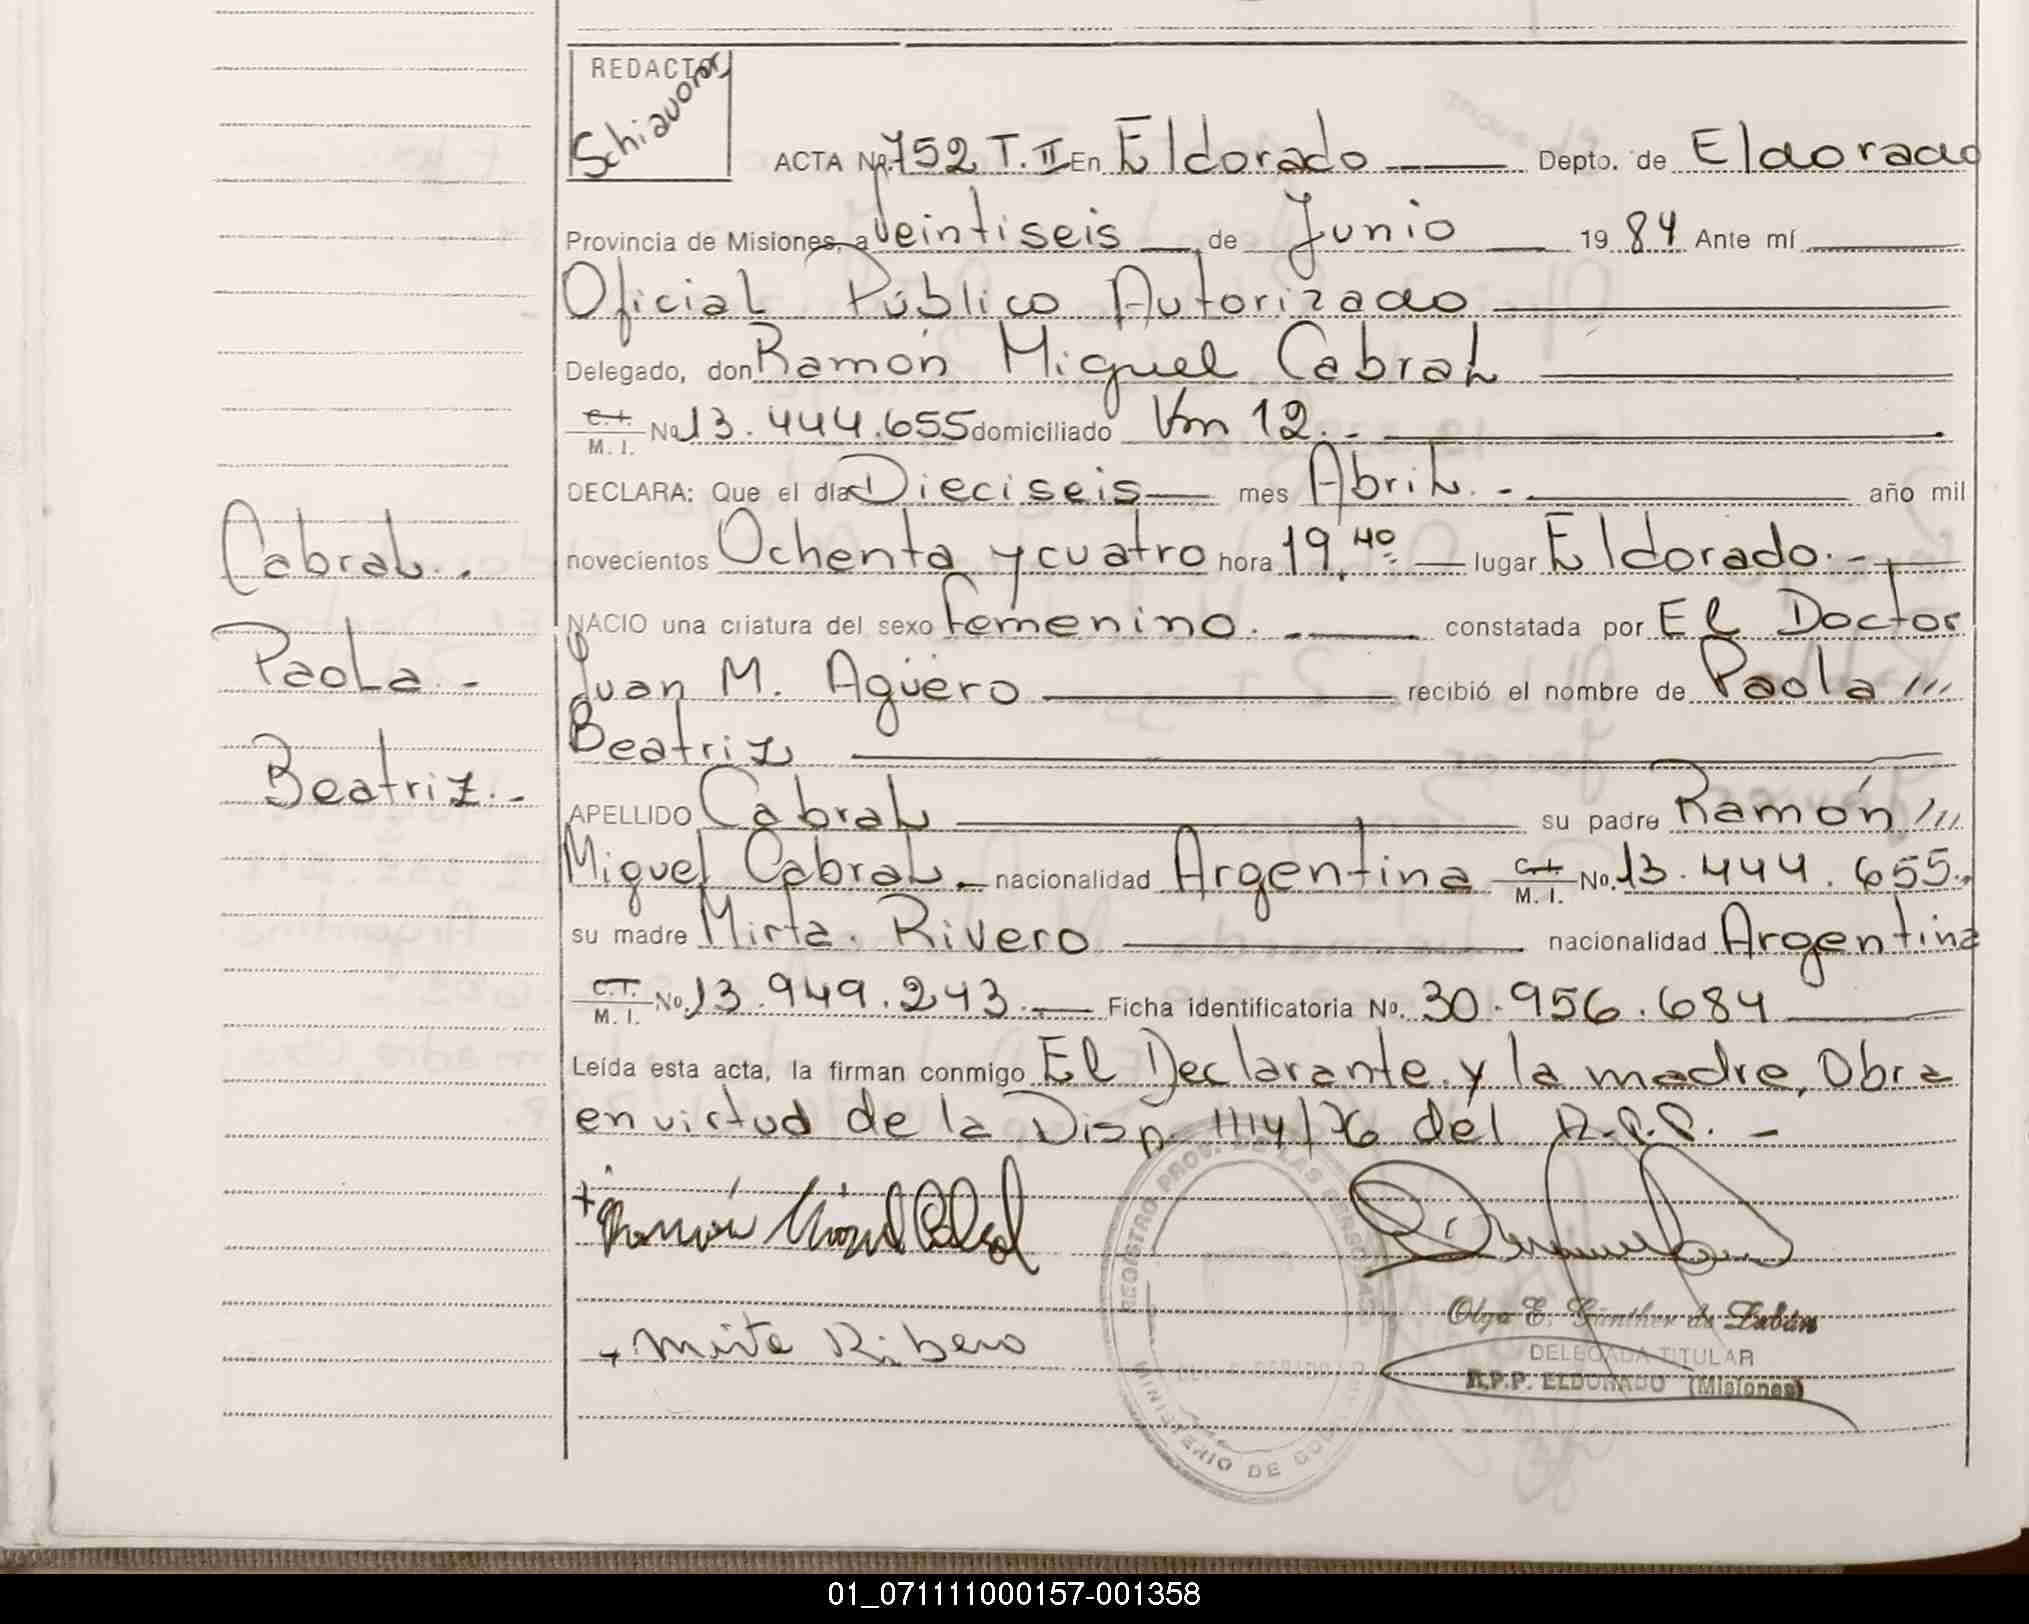 REDACTOR
Schiavoni
ACTA Nº. 752 T. II En Eldorado Depto. de Eldorado
Provincia de Misiones, a Veintiseis de Junio 1984 Ante mí
Oficial Público Autorizado
Delegado, don Ramón Miguel Cabral
C.I. M. I. No. 13.444.655 domiciliado Km 12.-
DECLARA: Que el día Dieciseis mes Abril.- año mil
novecientos Ochenta y cuatro hora 19,40 lugar Eldorado.-
NACIO una criatura del sexo femenino.- constatada por El Doctor
Juan M. Agüero recibió el nombre de Paola ///
Beatriz
APELLIDO Cabral su padre Ramón ///
Miguel Cabral.- nacionalidad Argentina C.I. M. I. No. 13.444.655.
su madre Mirta. Rivero nacionalidad Argentina
C.I. M. I. No. 13.949.243.- Ficha identificatoria No. 30.956.684
Leída esta acta, la firman conmigo El Declarante y la madre, Obra
en virtud de la Disp. 1114/76 del R.P.P.-
Cabral.-
Paola.-
Beatriz.-
+ Ramón Miguel Cabral
+ Mirta Ribero
REGISTRO PROV. DE LAS PERSONAS
MINISTERIO DE GOB
Olga E. Günther de
DELEGADA TITULAR
R.P.P. ELDORADO (Misiones)
01_071111000157-001358